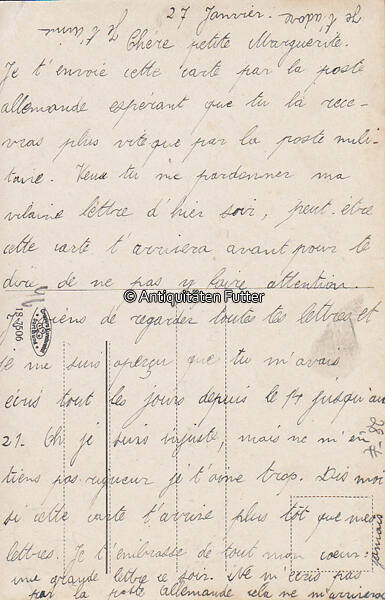 27 Janvier.
Je t'adore
Je t'aime
Chère petite Marguerite.
Je t'envoie cette carte par la poste
allemande espérant que tu la rece-
vras plus vite que par la poste mili-
taire. Veux tu me pardonner ma
vilaine lettre d'hier soir, peut-être
cette carte t'arrivera avant pour te
dire de ne pas y faire attention.
© Antiquitäten Futter
Je viens de regarder toutes tes lettres et
je me suis aperçu que tu m'avais
écris tout les jours depuis le 14 jusqu'au
21. Oh je suis injuste, mais ne m'en
tiens pas rigueur je t'aime trop. Dis moi
si cette carte t'arrive plus tôt que mes
lettres. Je t'embrasse de tout mon coeur.
une grande lettre ce soir. Ne m'écris pas
par la poste allemande cela ne m'arrivera
jamais
18-2506